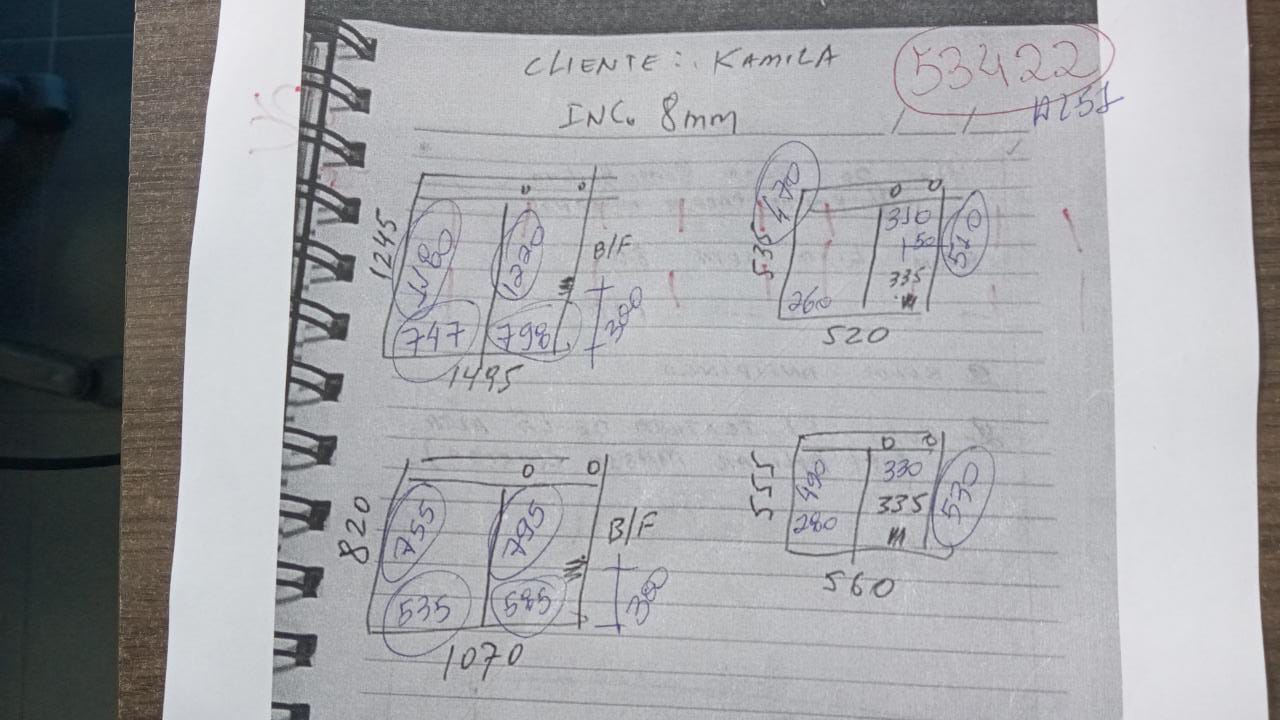 CLIENTE: KAMILA
53422
INC. 8mm
1245
1180
1220
B/F
747
798
300
1495
535
470
310
150
510
335
m
260
520
820
755
795
B/F
535
585
300
1070
555
490
330
530
280
335
m
560